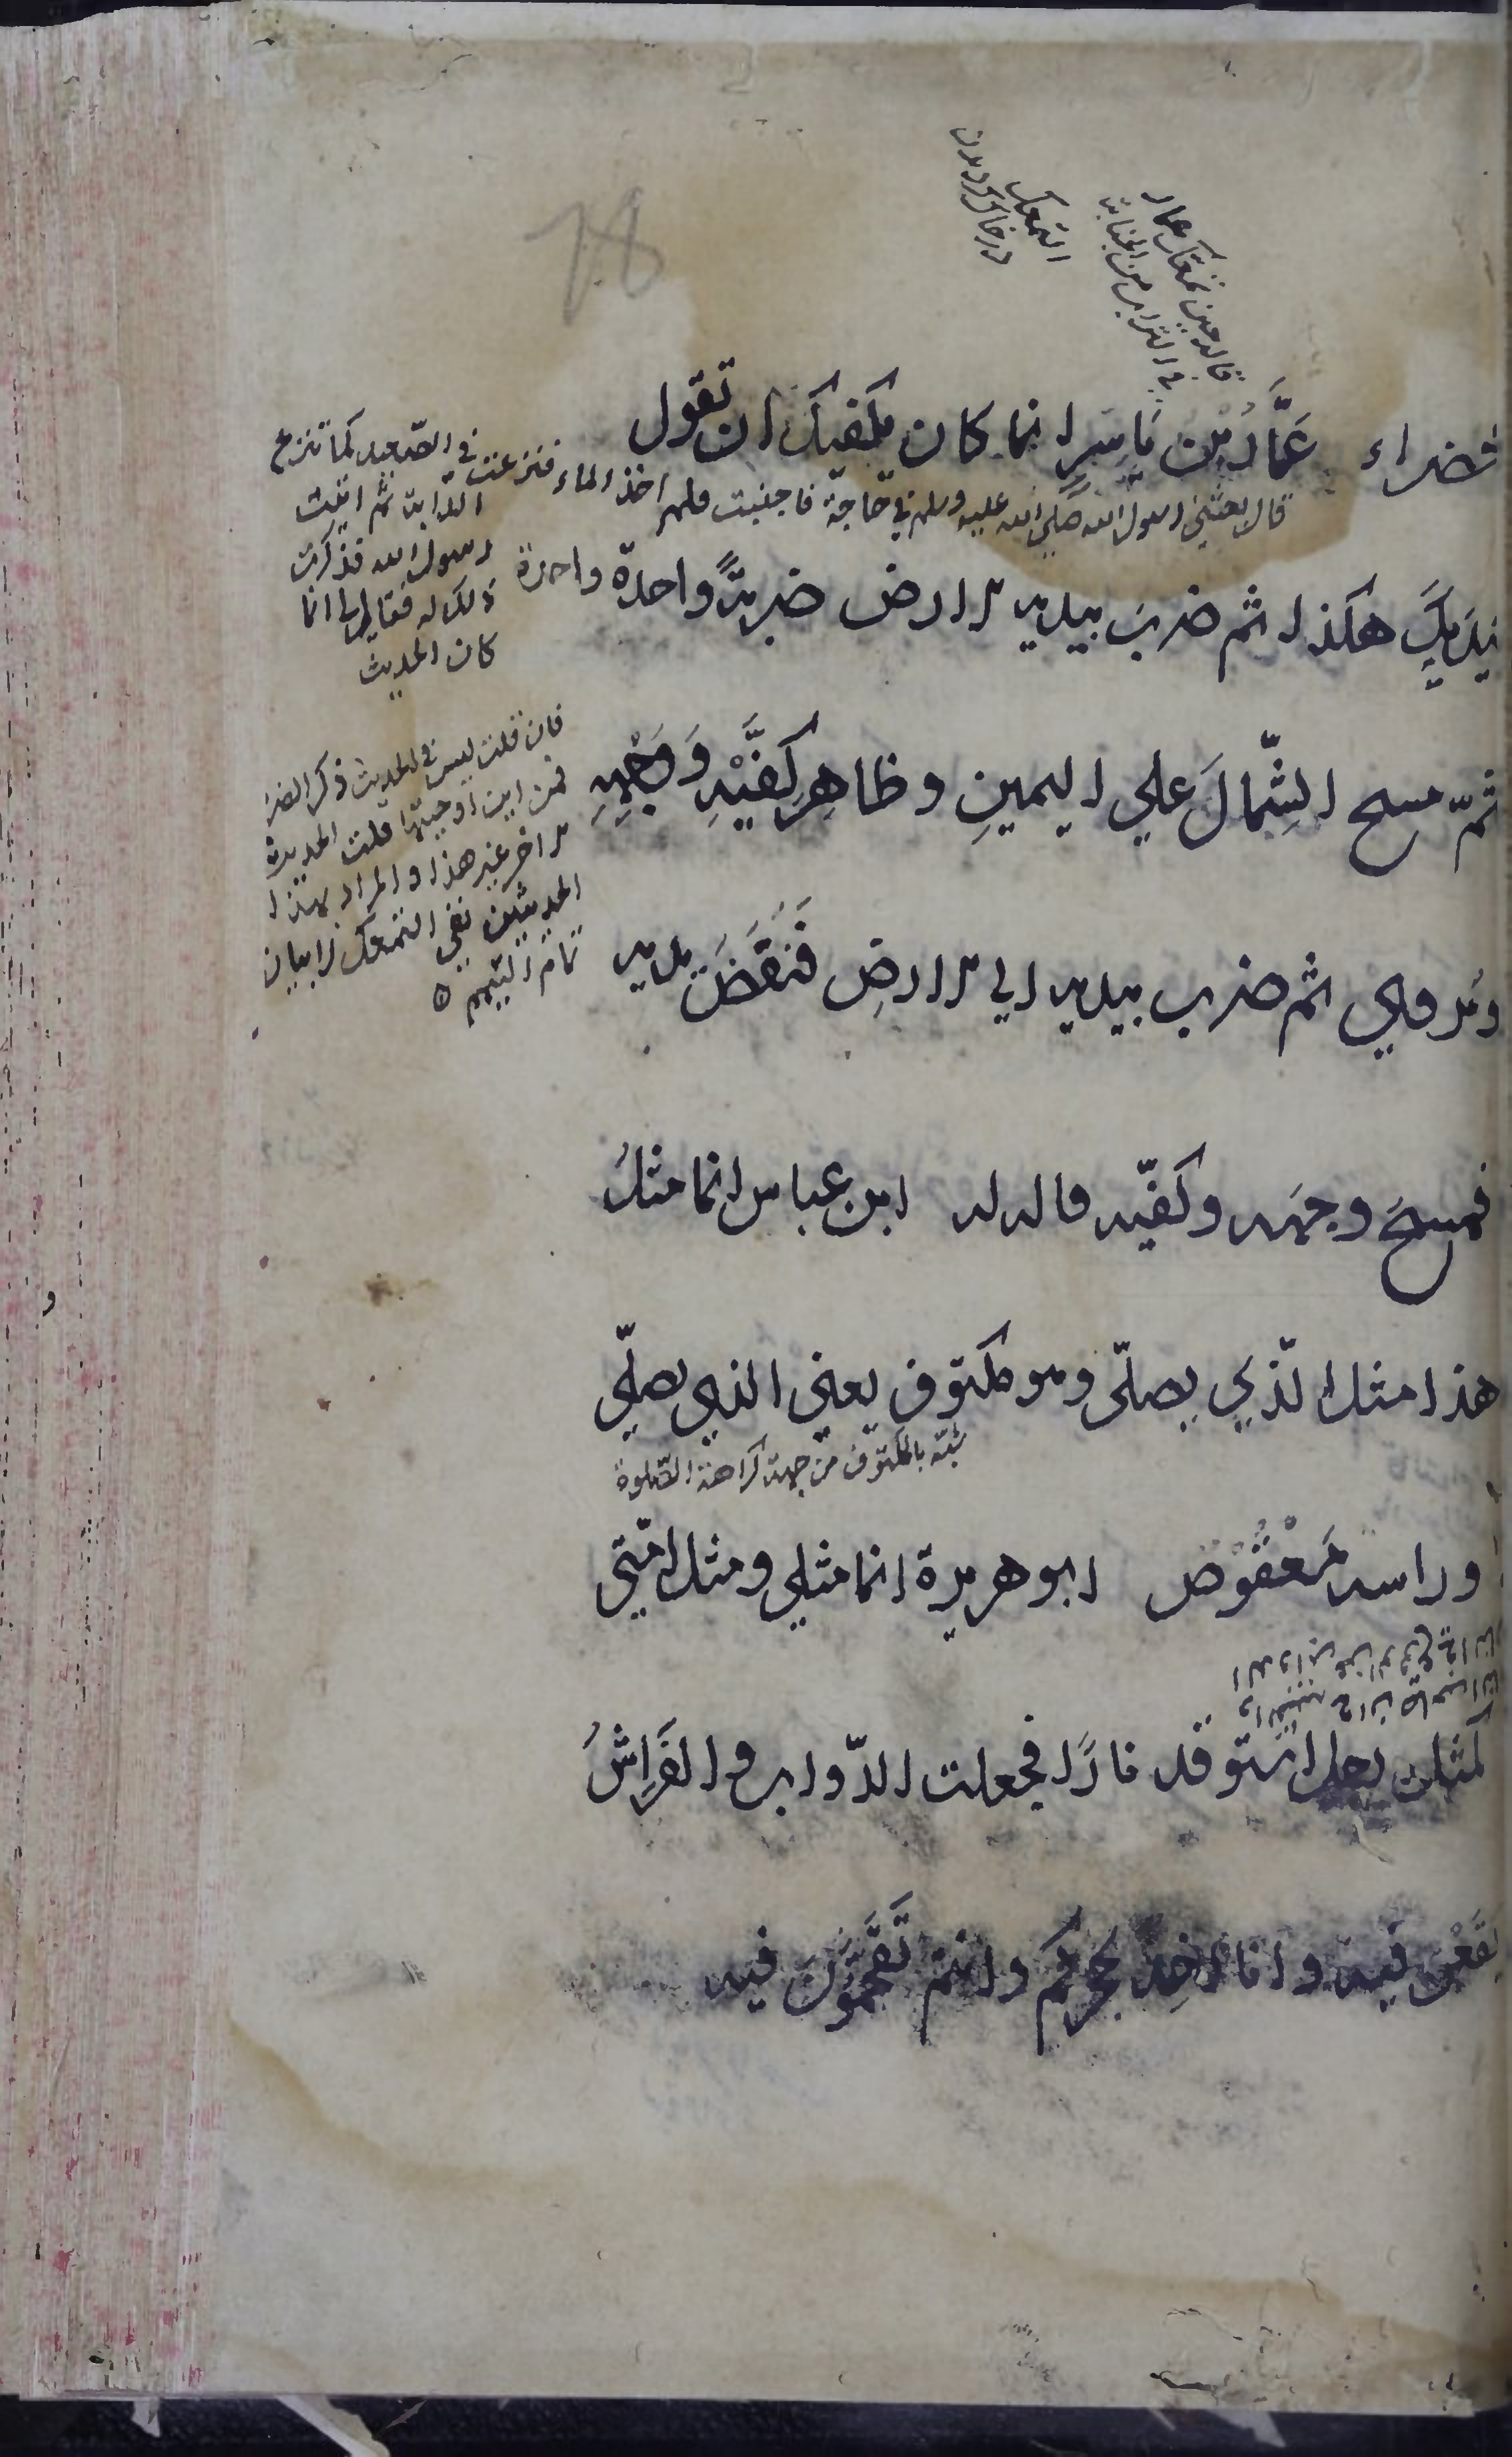 التمعك
در خاك
قال حين تمعك عمار
في التراب من الجنابة
خضراء عَمَّارُ بْن يَاسِرٍ انما كان يكفيك ان تقول
قال بعثني رسول الله صلي الله عليه وسلم في حاجة فاجنبت فلم اخذ الماء فتمرغت في الصعيد كما تمرغ
الدابة ثم اتيت
رسول الله فذكرت
ذلك له فقال انما
كان الحديث
بيَدَيكَ هكذا ثم ضربَ بيديه الارض ضربةً واحدة واحدة
ثمّ مسح الشِّمالَ علي اليمينِ وظاهِرِ كَفَّيْهِ وَوَجْهِهِ
فان قلت ليس في الحديث ذكر
فمن اين اوجبتها قلت الحديث
الاخر غير هذا والمراد بهذا
الحديثين نفي التمعك لا بيان
تمام التيمم
ويُروي ثم ضرب بيديه الي الارضِ فَنَفَضَ يديه
فمسحَ وجهَه وكفّيه قاله له ابن عباس انما مثلُ
هذا مثل الّذي يصلّى وهو مكتوف يعني الذي يصلّي
شبّه بالمكتوف من جهة كراهة الصّلوة
وراسه مَعْقُوْص ابو هريرة انما مثلي ومثل امّتي
كمثل رجل استوقد نارًا فجعلت الدّواب والفَرَاشُ
يقَعْنَ فيه وانا اخِذٌ بحجزكم وانتم تَقَحَّمُوْنَ فيه